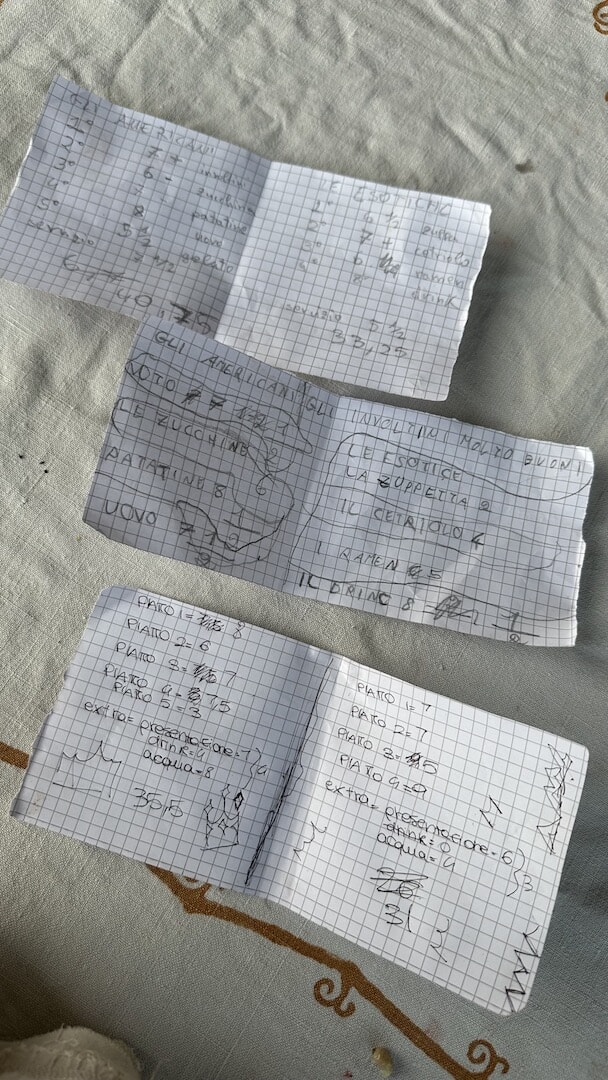 GLI AMERICANI
1° 7 + involtini
2° 6 - zucchine
3° 7 - patatine
4° 8 uovo
5° 5 1/2 gelato
servizio 7 1/2
40,75
LE ESOTICHE
1° 6 1/2 zuppa
2° 7 + cetriolo
3° 6 1/2 ramen
4° 8 drink
servizio 5 1/2
33,25
GLI AMERICANI GLI INVOLTINI MOLTO BUONI
VOTO 7 1/2
LE ZUCCHINE
PATATINE 8
UOVO 7 1/2
LE ESOTICE
LA ZUPPETTA 2
IL CETRIOLO 4
I RAMEN 5
IL DRINC 8 1/2
PIATTO 1= 8
PIATTO 2= 6
PIATTO 3= 7
PIATTO 4= 7,5
PIATTO 5= 3
extra= presentazione= 7
drink= 4
acqua= 8
4
35,5
PIATTO 1= 7
PIATTO 2= 7
PIATTO 3= 5
PIATTO 4= 9
extra= presentazione= 6
drink= 0
acqua= 4
3
31